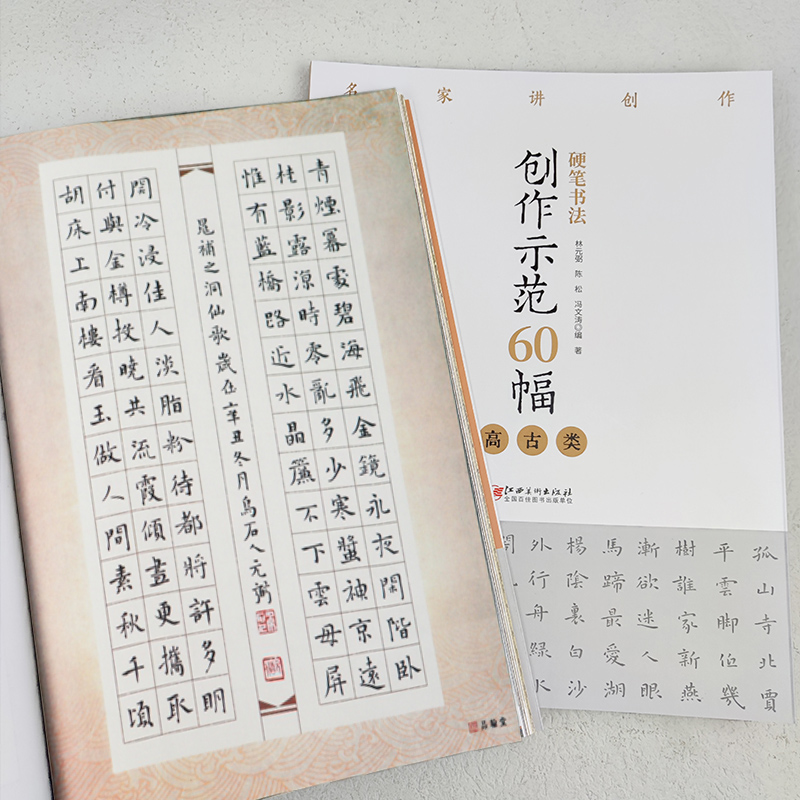 青煙冪處碧海飛金鏡永夜閑階臥
桂影露涼時零亂多少寒螿神京遠
惟有藍橋路近水晶簾不下雲母屏
晁補之洞仙歌歲在辛丑冬月烏石人元弼
開冷浸佳人淡脂粉待都將許多明
付與金樽投曉共流霞傾盡更攜取
胡床上南樓看玉做人間素秋千頃
品翰堂
名家讲创作
硬笔书法
创作示范60幅
林元弼 陈松 冯文涛◎编著
高古类
江西美术出版社
全国百佳图书出版单位
孤山寺北賈
平雲脚低幾
樹誰家新燕
漸欲迷人眼
馬蹄最愛湖
楊陰裏白沙
外行舟綠水